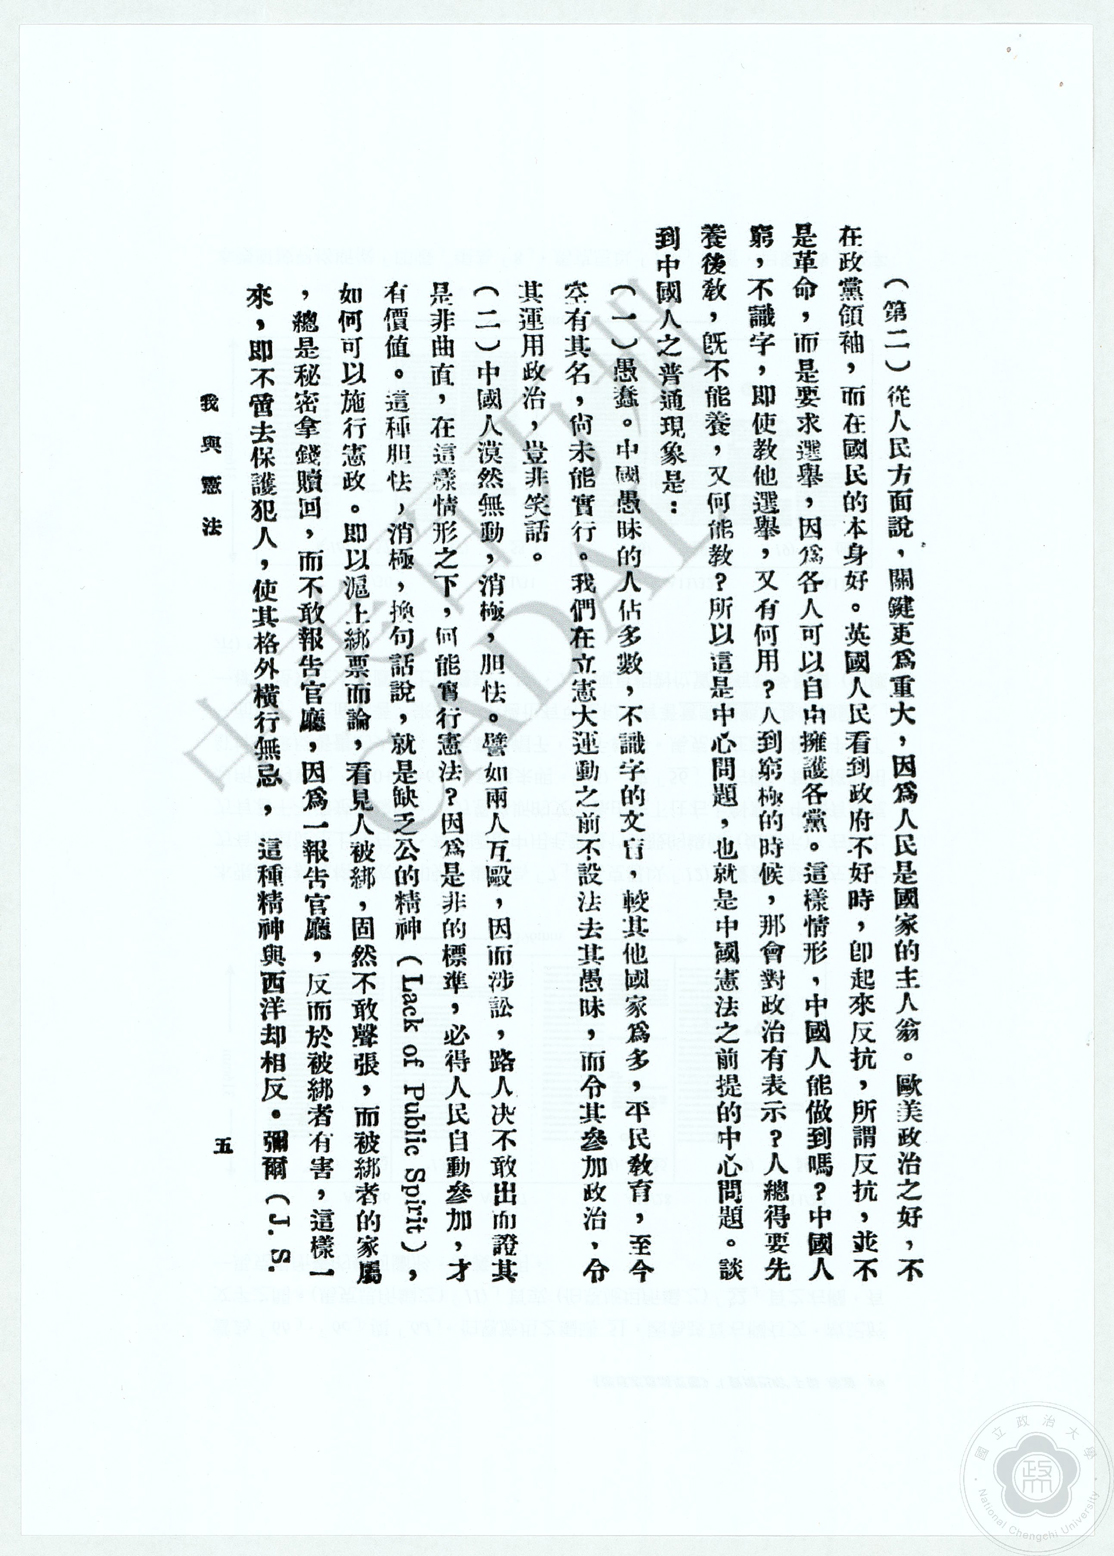 （第二）從人民方面說，關鍵更爲重大，因爲人民是國家的主人翁。歐美政治之好，不
在政黨領袖，而在國民的本身好。英國人民看到政府不好時，即起來反抗，所謂反抗，並不
是革命，而是要求選舉，因爲各人可以自由擁護各黨。這樣情形，中國人能做到嗎？中國人
窮，不識字，即使教他選舉，又有何用？人到窮極的時候，那會對政治有表示？人總得要先
養後教，既不能養，又何能教？所以這是中心問題，也就是中國憲法之前提的中心問題。談
到中國人之普通現象是：
（一）愚蠢。中國愚昧的人佔多數，不識字的文盲，較其他國家爲多，平民教育，至今
空有其名，尚未能實行。我們在立憲大運動之前不設法去其愚昧，而令其參加政治，令
其運用政治，豈非笑話。
（二）中國人漠然無動，消極，胆怯。譬如兩人互毆，因而涉訟，路人决不敢出而證其
是非曲直，在這樣情形之下，何能實行憲法？因爲是非的標準，必得人民自動參加，才
有價值。這種胆怯，消極，換句話說，就是缺乏公的精神（Lack of Public Spirit），
如何可以施行憲政。即以滬上綁票而論，看見人被綁，固然不敢聲張，而被綁者的家屬
，總是秘密拿錢贖回，而不敢報告官廳，因爲一報告官廳，反而於被綁者有害，這樣一
來，即不啻去保護犯人，使其格外橫行無忌，這種精神與西洋却相反。彌爾（J. S.
我與憲法
五
中美百萬冊
CADAL
國立政治大學
National Chengchi University